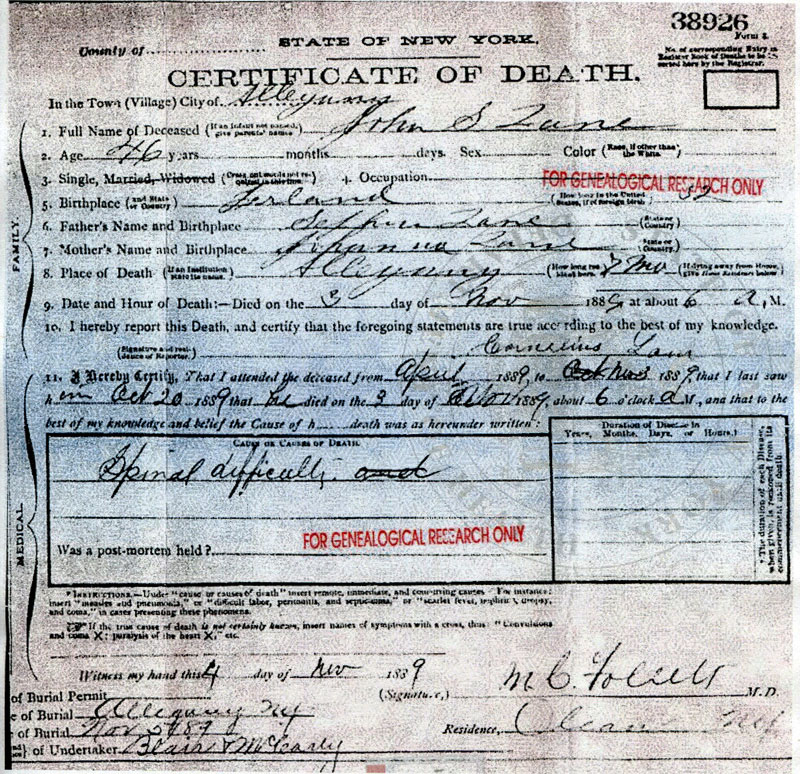 38926
Form 2.
County of
STATE OF NEW YORK.
No. of corresponding Entry in Register Book of Deaths to be
CERTIFICATE OF DEATH.
In the Town (Village) City of Allegany
1. Full Name of Deceased (If an infant not named, give parents' names) John S Lane
2. Age 46 years months days. Sex Color (Race, if other than the White.)
3. Single, Married, Widowed 4. Occupation.
FOR GENEALOGICAL RESEARCH ONLY
5. Birthplace (and State or Country) Ierland (How long in the United States, if of foreign birth) 32
6. Father's Name and Birthplace Lane (State or Country)
7. Mother's Name and Birthplace Lane (State or Country.)
8. Place of Death (If an Institution state the name.) Allegany (How long resident here.) 7 Mo (If dying away from Home, give Home Residence below.)
9. Date and Hour of Death:—Died on the 3 day of Nov 1889 at about 6 A, M.
10. I hereby report this Death, and certify that the foregoing statements are true according to the best of my knowledge.
(Signature and residence of Reporter.) Cornelius Lane
11. I Hereby Certify, That I attended the deceased from April 1889, to Nov 3 1889, that I last saw
him Oct 20 1889 that he died on the 3 day of Nov 1889, about 6 o'clock A M., and that to the
best of my knowledge and belief the Cause of h death was as hereunder written:
CAUSE OR CAUSES OF DEATH.
Duration of Disease in
Years, Months, Days, or Hours.
Spinal difficulty and
Was a post-mortem held?
FOR GENEALOGICAL RESEARCH ONLY
*The duration of each Disease, when given, is reckoned from its commencement until death
FAMILY.
MEDICAL.
*INSTRUCTIONS.—Under "cause or causes of death" insert remote, immediate, and concurring causes For instance:
insert "measles and pneumonia," or "difficult labor, peritonitis, and septicæmia," or "scarlet fever, nephritic dropsy,
and coma," in cases presenting these phenomena.
If the true cause of death is not certainly known, insert names of symptoms with a cross, thus: "Convulsions
and coma X: paralysis of the heart X," etc.
Witness my hand this 4 day of Nov 1889
(Signature,) M.D.
of Burial Permit
of Burial Allegany Ny
of Burial Nov 5 1889
Residence, Olean
of Undertaker Blair & McCarty